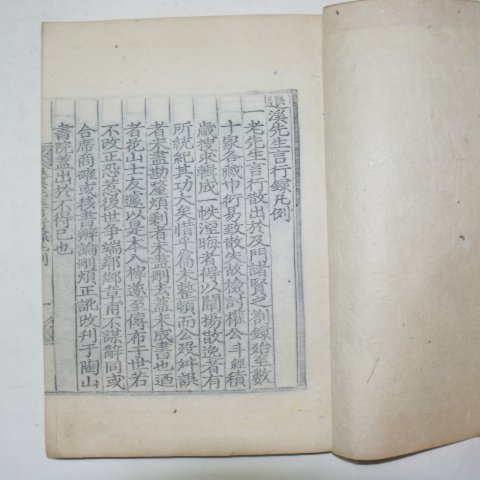 退溪先生言行錄凡例
一老先生言行散出於及門諸賢之劄錄殆至數
十家各藏巾衍易致散失故檢討權公斗經積
歲搜求輯成一帙湮晦者得以闡揚散逸者有
所統紀其功大矣惜乎篇未整頓而公歿舛誤
者未盡勘釐煩剩者未盡刪去蓋未成書也迺
者花山士友遽以是本入梓遂至傳布于世若
不改正恐惹後世爭端鄰鄉章甫不謀辭同或
合席商確或移書辯論刪煩正訛改刊于陶山
書院蓋出於不得已也